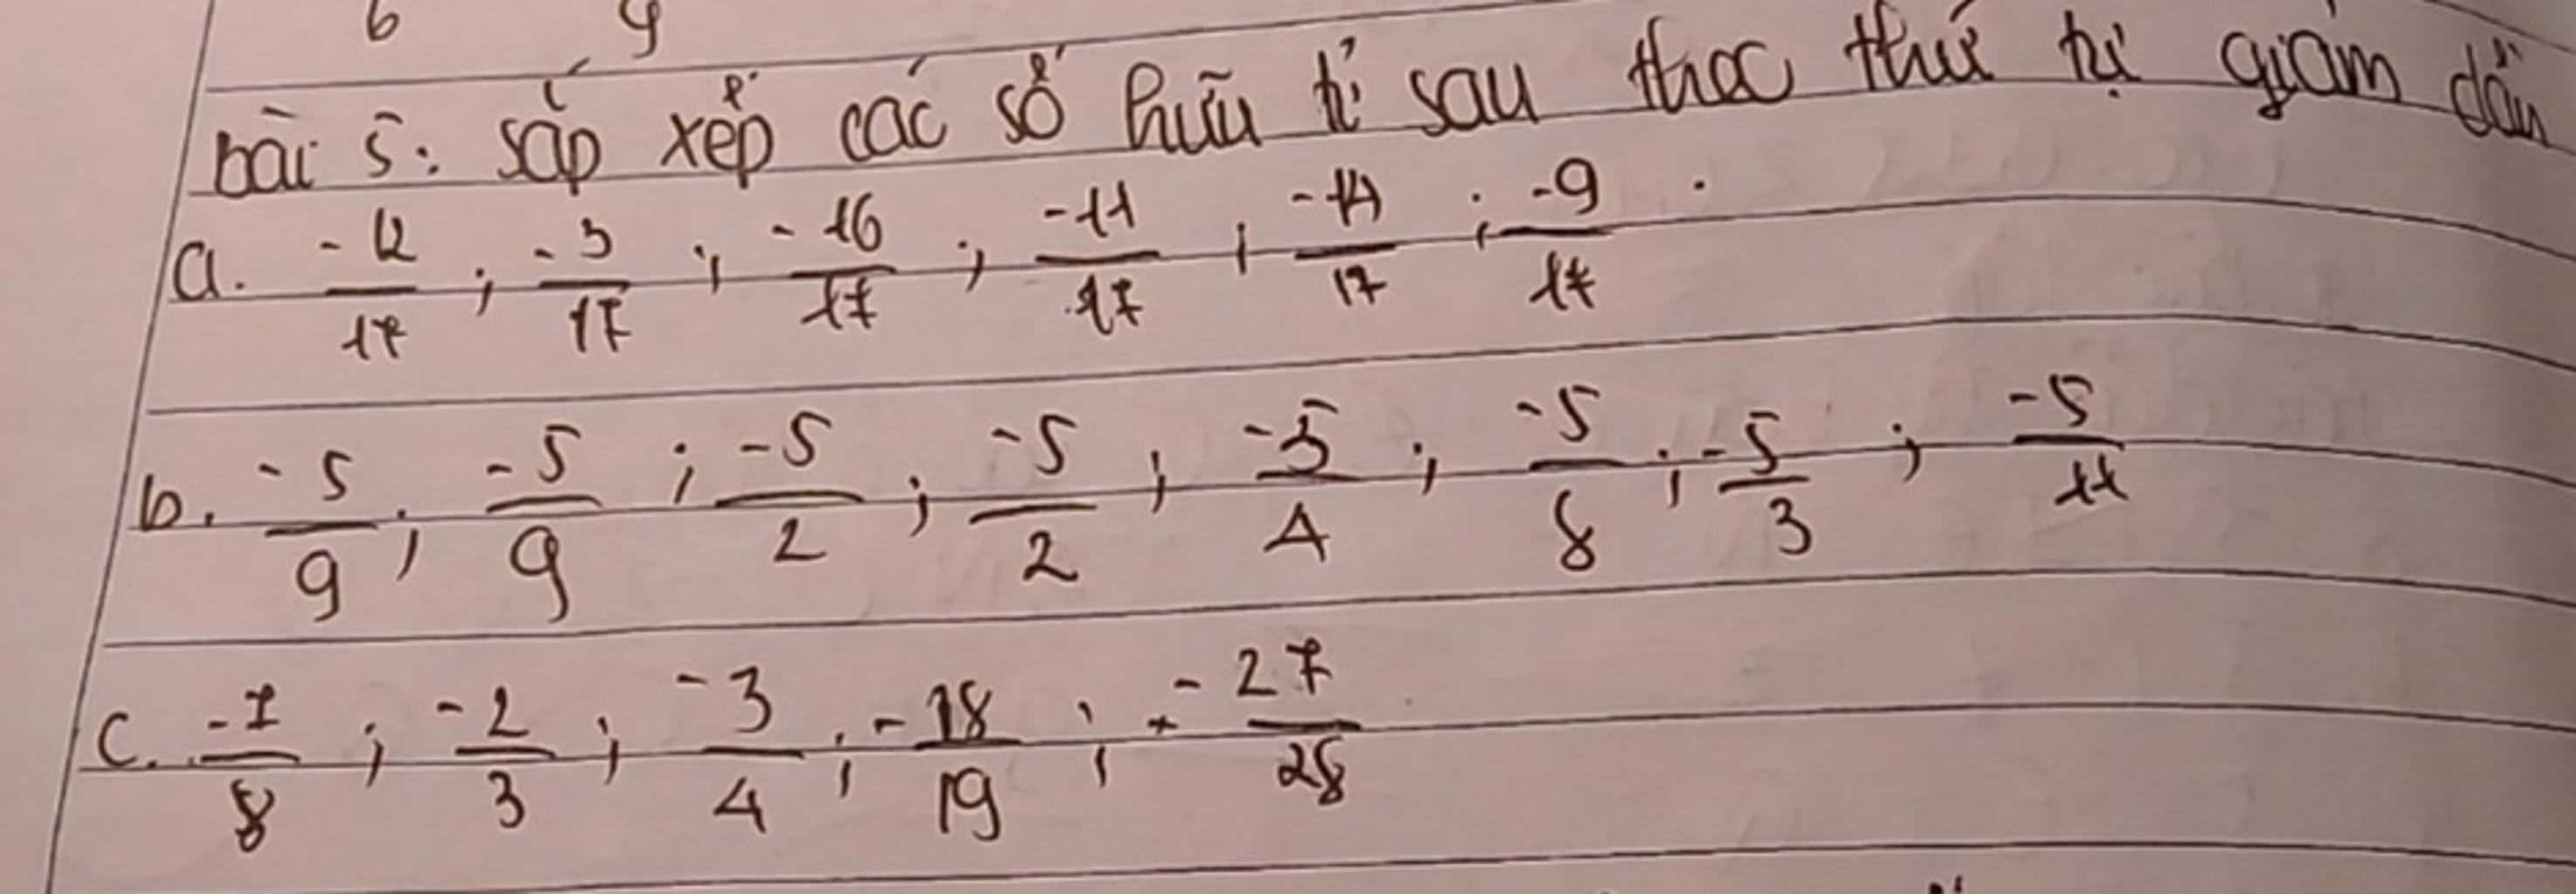 6 9
bài 5: sắp xếp các số hữu tỉ sau theo thứ tự giảm dần
a. -12/17 ; -3/17 ; -16/17 ; -11/17 ; -14/17 ; -9/17 .
b. -5/9 ; -5/9 ; -5/2 ; -5/2 ; -5/4 ; -5/8 ; -5/3 ; -5/11
c. -7/8 ; -2/3 ; -3/4 ; -18/19 ; -27/28